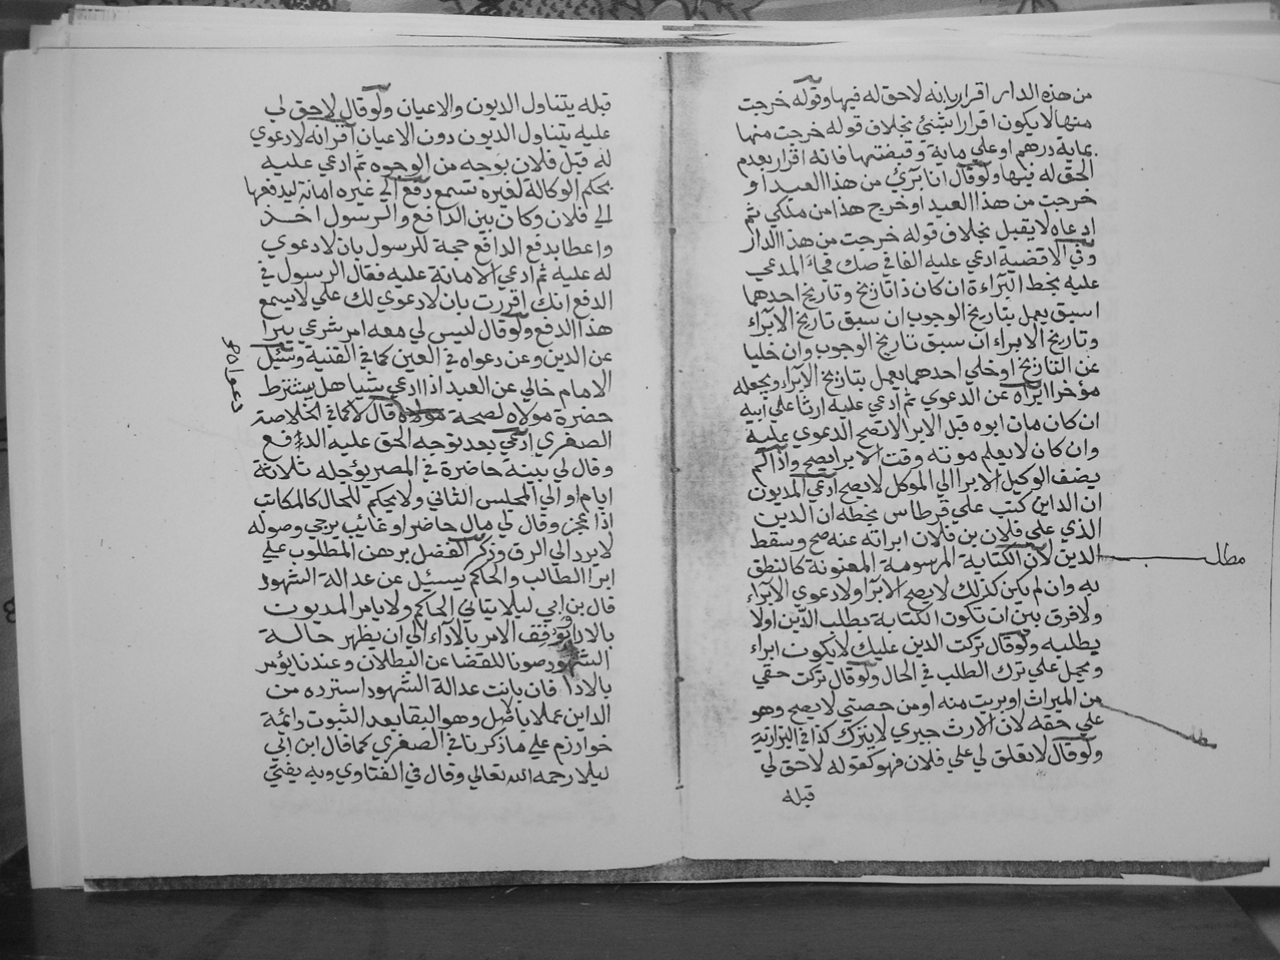 من هذه الدار اقرار بانه لاحق له فيها وقوله خرجت
منها لا يكون اقرارا بشئ بخلاف قوله خرجت منها
بماية درهم او علي ماية وقبضتها فانه اقرار بعدم
الحق له فيها ولو قال انا بريء من هذا العبد او
خرجت من هذا العبد او خرج هذا من ملكي ثم
ادعاه لا يقبل بخلاف قوله خرجت من هذا الدار
وفي الاقضية ادعي عليه الفا في صك فجاء المدعي
عليه بخط البرآءة ان كان ذا تاريخ وتاريخ احدهما
اسبق يعمل بتاريخ الوجوب ان سبق تاريخ الابرآء
وتاريخ الابراء ان سبق تاريخ الوجوب وان خليا
عن التاريخ او خلي احدهما يعمل بتاريخ الابراء ويجعله
مؤخرا ابراه عن الدعوي ثم ادعي عليه ارثا علي ابيه
ان كان مات ابوه قبل الابرا لا تصح الدعوي عليه
وان كان لا يعلم موته وقت الابرا يصح واذا لم
يضف الوكيل الابرا الي الموكل لا يصح ادعي المديون
ان الداين كتب علي قرطاس بخطه ان الدين
الذي علي فلان بن فلان ابراته عنه صح وسقط
الدين لان الكتابة المرسومة المعنونة كالنطق
به وان لم يكن كذلك لا يصح الابرآ ولا دعوي الابرآء
ولا فرق بين ان تكون الكتابة بطلب الدين اولا
يطلبه ولو قال تركت الدين عليك لا يكون ابراء
ويحمل علي ترك الطلب في الحال ولو قال تركت حقي
من الميراث او بريت منه او من حصتي لا يصح وهو
علي حقه لان الارث جبري لا يترك كذا في البزازية
ولو قال لا تعلق لي علي فلان فهو كقوله لاحق لي
قبله
مطلب
مطلب
قبله يتناول الديون والاعيان ولو قال لاحق لي
عليه يتناول الديون دون الاعيان اقر انه لا دعوي
له قبل فلان بوجه من الوجوه ثم ادعي عليه
بحكم الوكالة لغيره تسمع دفع الي غيره امانة ليدفعها
الي فلان وكان بين الدافع والرسول اخذ
واعطا بدفع الدافع حجة للرسول بان لا دعوي
له عليه ثم ادعي الامانة عليه فقال الرسول في
الدفع انك اقررت بان لا دعوي لك علي لا يسمع
هذا الدفع ولو قال ليس لي معه امر شرعي يبرا
عن الدين وعن دعواه في العين كما في القنية وسئل
الامام خالي عن العبد اذا ادعي شيا هل يشترط
حضرة مولاه لصحة قال لا كما في الخلاصة
دعواه صح
الصغري ادعي بعد توجه الحق عليه الدفع
وقال لي بينة حاضرة في المصر يؤجله ثلاثة
ايام او الي المجلس الثاني ولا يحكم للحال كالمكاتب
اذا عجز وقال لي مال حاضر او غائب يرجي وصوله
لا يرد الي الرق وذكر الفضل برهن المطلوب علي
ابرا الطالب والحاكم يسئل عن عدالة الشهود
قال بن ابي ليلا يتاني الحاكم ولا يامر المديون
بالادا توقف الامر بالادآء الي ان يظهر حالة
الشهود صونا للقضا عن البطلان وعندنا يؤمر
بالادا فان بانت عدالة الشهود استرده من
الداين عملا باصل وهو البقا بعد الثبوت وائمة
خوارزم علي ما ذكرنا في الصغري كما قال ابن ابي
ليلا رحمه الله تعالي وقال في الفتاوي وبه يفتي